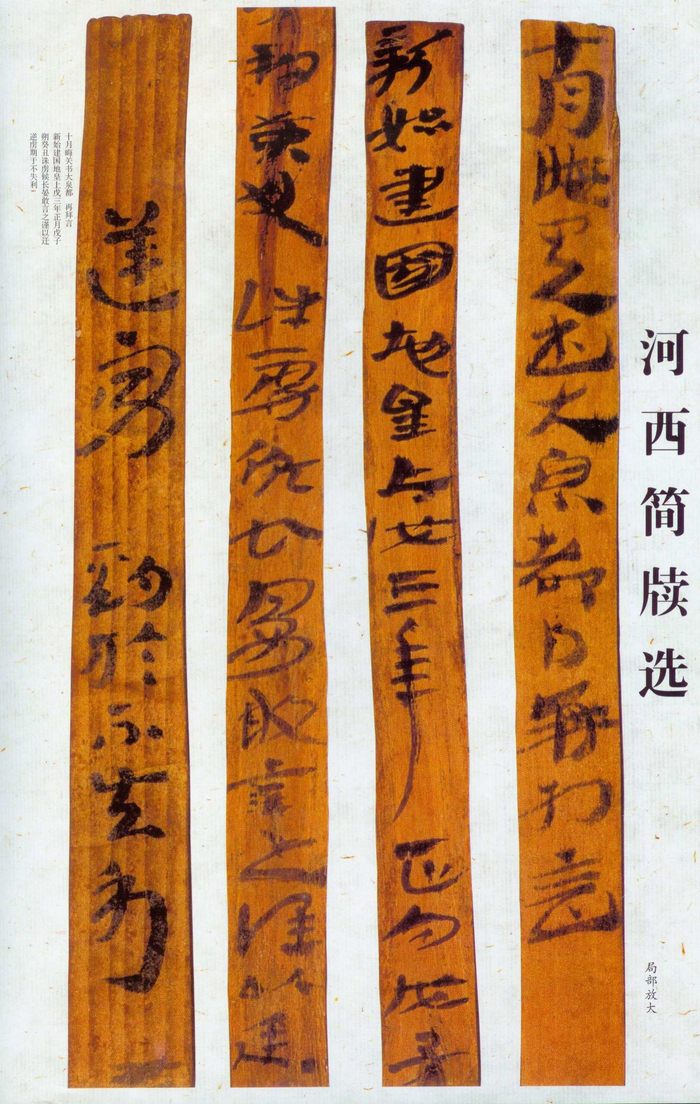 河西简牍选
局部放大
十月晦关书大泉都 再拜言
新始建国地皇上戊三年
正月戊子
朔癸丑诛虏候长晏敢言之谨以迁
逆虏
期于不失利
十月晦关书大泉都 再拜言
新始建国地皇上戊三年正月戊子
朔癸丑诛虏候长晏敢言之谨以迁
逆虏期于不失利